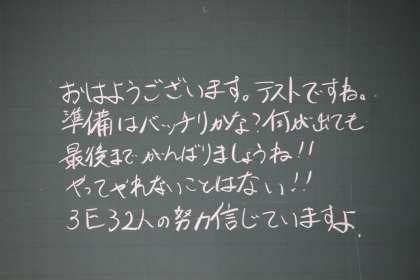 おはようございます。テストですね。
準備はバッチリかな？何が出ても
最後までがんばりましょうね！！
やってやれないことはない！！
3E32人の努力信じていますよ。